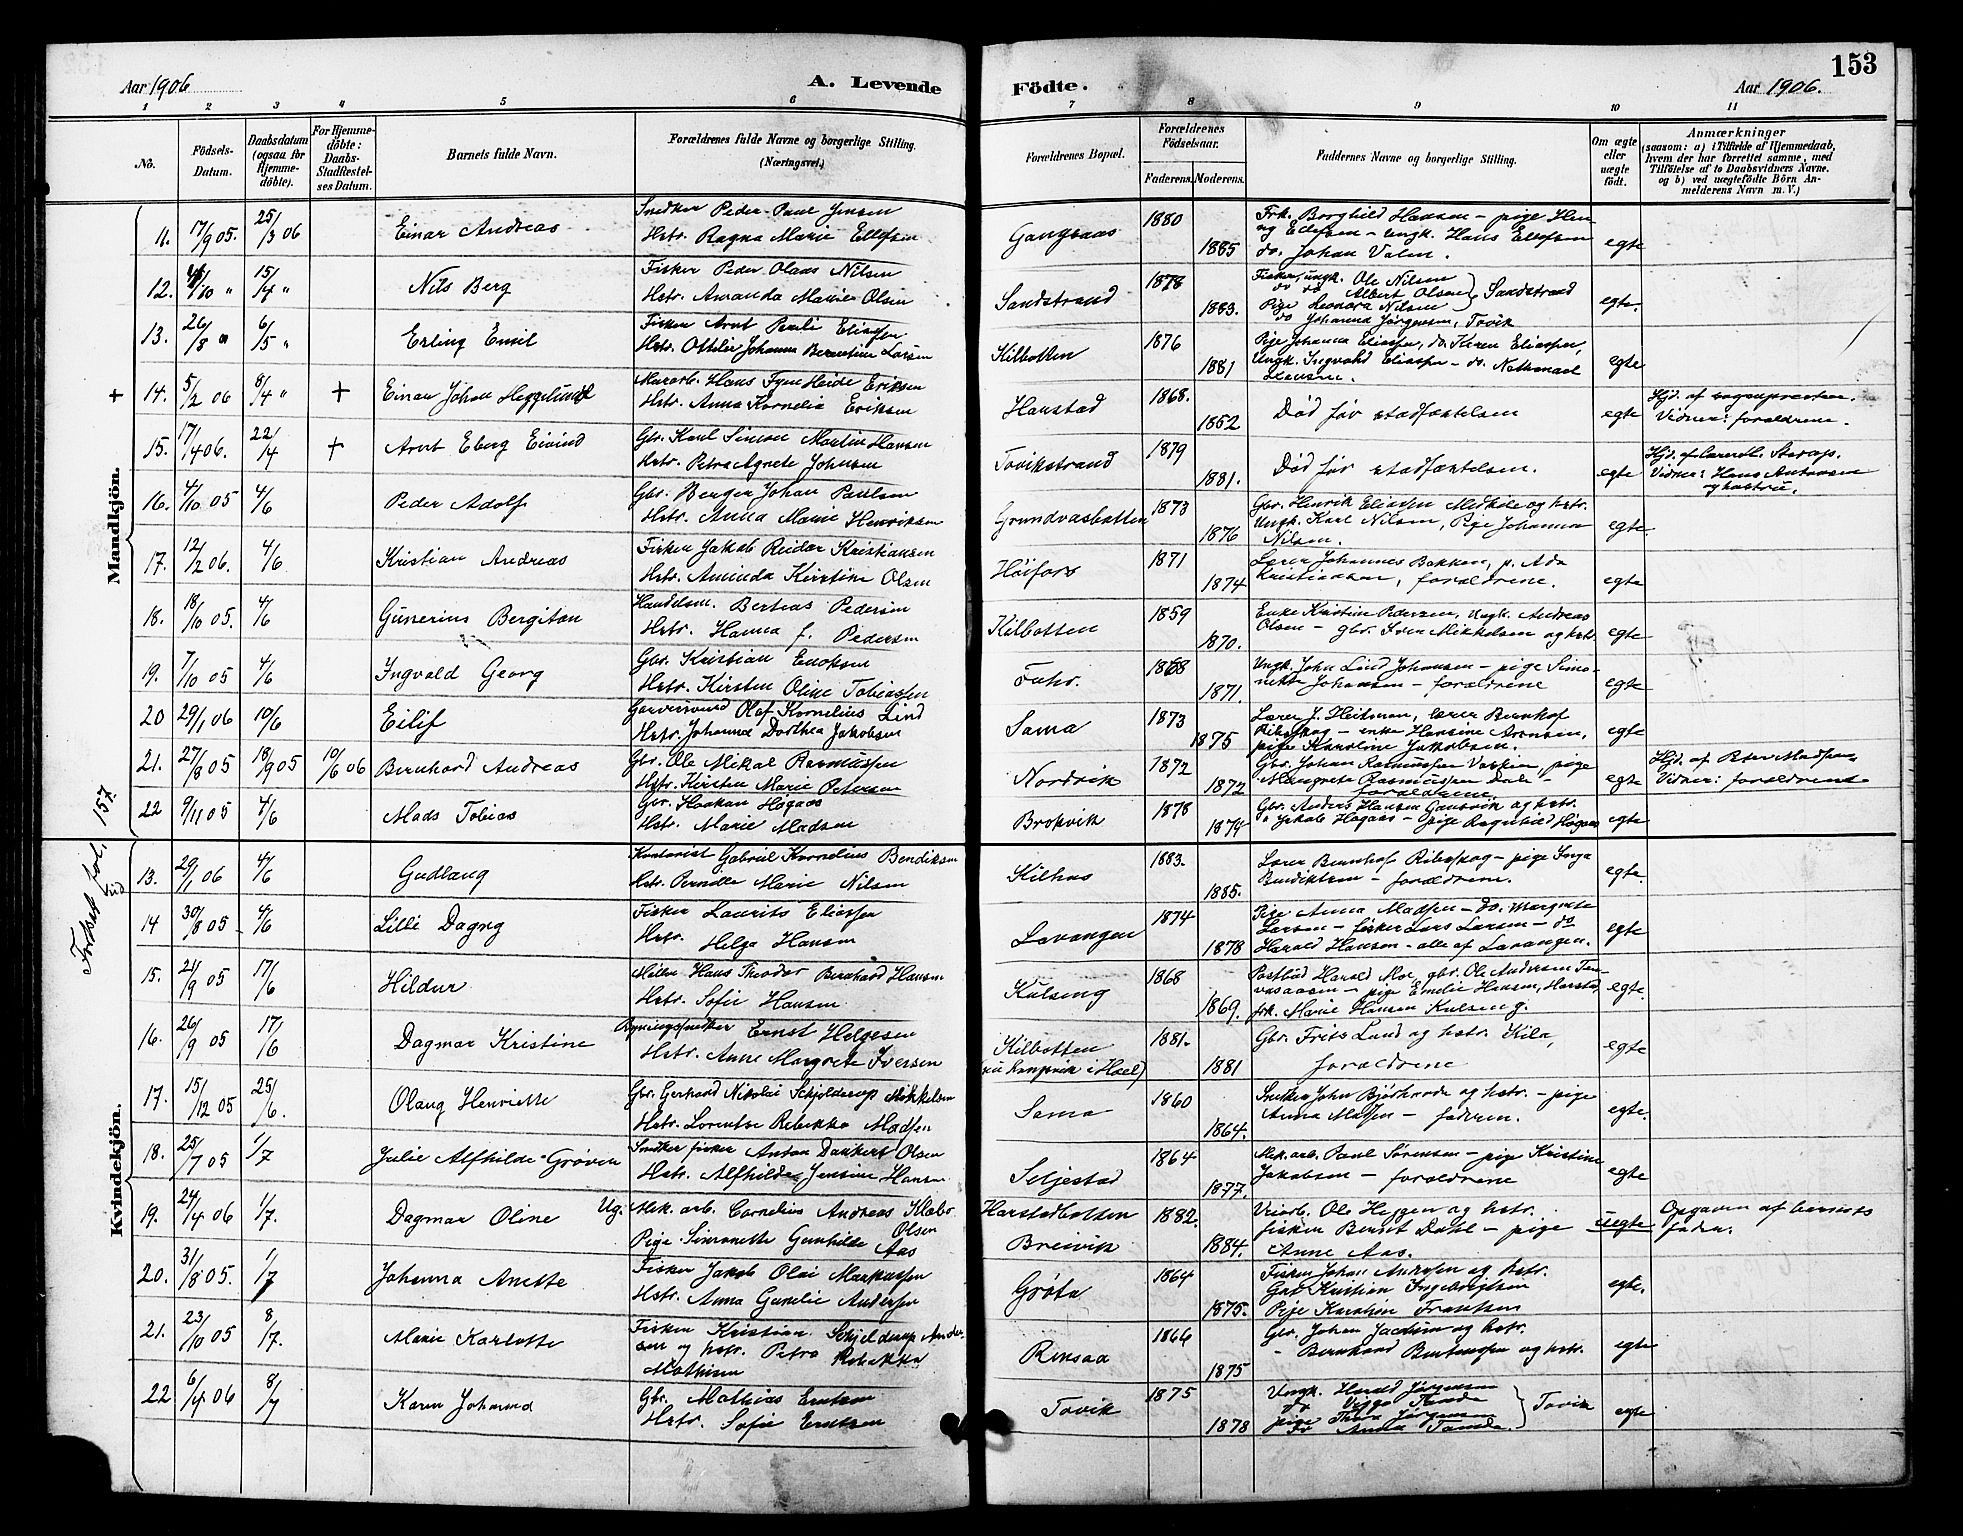 153
Aar 1906
A. Levende
Födte.
Aar 1906.
1 2 3 4 5 6 7 8 9 10 11
No.
Födsels-Datum.
Daabsdatum (ogsaa for Hjemmedöbte).
For Hjemmedöbte: Daabs-Stadfestelses Datum.
Barnets fulde Navn.
Forældrenes fulde Navne og borgerlige Stilling. (Næringsvei.)
Forældrenes Bopæl.
Forældrenes Födselsaar.
Faderens. Moderens.
Faddernes Navne og borgerlige Stilling.
Om ægte eller uægte födt.
Anmærkninger
(saasom: a) i Tilfælde af Hjemmedaab, hvem der har forrettet samme, med Tilföielse af to Daabsvidners Navne. og b) ved uægtefödte Börn Anmelderens Navn m. V.)
Mandkjön.
11. 17/9 05. 25/3 06 Einar Andreas
Snedker Peder Paul Jensen
Hstr. Ragna Marie Ellefsen
Gangsaas 1880 1885
Frk. Borghild Hansen – pige
Ellefsen – Ungk. Hans Ellefsen
do. Johan Valen.
egte
12. /10 " 15/4 " Nils Berg
Fisker Peder Olaus Nilsen
Hstr. Amanda Marie Olsen
Sandstrand 1878 1883.
Fisker, ungk. Ole Nilsen
do do Albert Olsen } Sandstrand
Pige Leonora Nilsen
do Johanna Jørgensen, Tovik
egte.
13. 26/8 " 6/5 " Erling Emil
Fisker Arnt Pauli Eliassen
Hstr. Ottelie Johanna Berntine Larsen
Kilbotten 1876 1881
Pige Johanna Eliassen, do. Karen Eliassen,
Ungk. Ingvald Eliassen – do. Nathanael
Hansen.
egte
+ 14. 5/2 06 8/4 " + Einar Johan Heggelund
Murarb. Hans Fyne Heide Eriksen
Hstr. Anna Kornelia Eriksen
Harstad 1868. 1852
Død før stadfæstelsen
egte
Hjd. af sognepræsten.
Vidner: forældrene.
15. 17/4 06. 22/4 + Arnt Eberg Eivind
Gbr. Karl Simon Martin Hansen
Hstr. Petra Agnete Johnsen
Tovikstrand 1879 1881.
Død før stadfæstelsen.
egte
Vidner: Hans Antonsen
og hustru.
16. 4/10 05 4/6 Peder Adolf
Gbr. Berger Johan Paulsen
Hstr. Anna Marie Henriksen
Grundvasbotten 1873 1876
Gbr. Henrik Eliassen Medkile og hstr.
Ungk. Karl Nilsen, Pige Johanna
Nilsen.
egte.
17. 12/2 06. 4/6 Kristian Andreas
Fisker Jakob Reidar Kristiansen
Hstr. Aminda Kirstine Olsen
Høifors 1871 1874
Lærer Johannes Bakken, p. Ada
Kristiansen, forældrene.
egte
18. 18/10 05. 4/6 Gunerius Bergiton
Handelsm. Berteas Pedersen
Hstr. Hanna f. Pedersen
Kilbotten 1859 1870.
Enke Kristine Pedersen, Ungk. Andreas
Olsen – gbr. Iver Mikkelsen og hstr
egte
19. 7/10 05 4/6 Ingvald Georg
Gbr. Kristian Enoksen
Hstr. Kirsten Oline Tobiassen
1868 1871.
Ungk. John Lind Johansen – pige Simo-
nette Johansen – forældrene
egte
20 29/1 06 10/6 Eilif
Garversvend Olaf Kornelius Lind
Hstr. Johanna Dorthea Jakobsen
Sama 1873 1875
Lærer J. Heitman, lærer Bernhof
Ribeskog – enke Hansine Aronsen,
pige Karoline Jakobsen.
egte
21. 27/8 05 18/9 05 10/6 06 Bernhard Andreas
Gbr. Ole Mikal Rasmussen
Hstr. Kirsten Marie Petersen
Nordvik 1872 1872
Gbr. Johan Rasmussen, pige
Margrete Rasmussen Dale –
forældrene
egte
Hjd. af Peter Madsen
Vidner: forældrene
22 9/11 05 4/6 Mads Tobias
Gbr. Haakan Høgaas
Hstr. Marie Madsen
Brokvik 1878 1874
Gbr. Anders Hansen Gausvik og hstr.
" Jakob Høgaas – pige Ragnhild Høgaas
egte
Fortsat fol. 157.
Kvindekjön.
13. 29/1 06 4/6 Gudlaug
Kontorist Gabriel Kornelius Bendiksen
Hstr. Pernille Marie Nilsen
Kilhus 1883. 1885.
Lærer Bernhof Ribeskog – pige Inga
Bendiktsen – forældrene.
egte.
14 30/8 05 4/6 Lilli Dagny
Fisker Laurits Eliassen
Hstr. Helga Hansen
Lavangen 1874 1878
Pige Anna Madsen – do. Margrete
Larsen – fisker Lars Larsen – do
Harald Hansen – alle af Lavangen.
egte
15. 21/9 05 17/6 Hildur
Møller Hans Theodor Bernhard Hansen
Hstr. Sofie Hansen.
Kulseng 1868 1869.
Postbud Harald Moe, gbr. Ole Andersen
– pige Emelie Hansen, Harstad,
frk. Marie Hansen Kulseng.
egte.
16. 26/9 05 17/6 Dagmar Kristine
Bygningssnedker Ernst Helgesen
Hstr. Anne Margrete Iversen
Kilbotten 1881. 1881
Gbr. Frits Lund og hstr. Kila,
forældrene
egte
17. 15/12 05 25/6. Olaug Henriette
Gbr. Gerhard Nikolai Schjelderup Mikkelsen
Hstr. Lorentse Rebekka Madsen
Sama 1860 1864.
Snedker John Bjørkaade og hstr. – pige
Anna Madsen – faderen.
egte.
18. 25/7 05 1/7 Julie Alfhilde Grøven
Snedker fisker Anton Dankert Olsen
Hstr. Alfhilde Jensine Hansen
Seljestad 1864 1877.
Mek. arb. Paul Sørensen – pige Kristine
Jakobsen – forældrene
egte
19. 24/4 06 1/7. Dagmar Oline
Ug. Mek. arb. Cornelius Andreas Klabo Olsen
Pige Simonette Gunhilde Aas
Harstadbotten 1882.
Breivik 1884.
Ole Heggen og hstr.
fisker Bernt Dahl – pige
Anne Aas.
uegte
Opgaven af barnets
fader.
20. 31/8 05. 1/7 Johanna Anette
Fisker Jakob Olai Markussen
Hstr. Anna Gurelie Andersen
Grøta 1864 1875.
Fisker Johan Andersen og hstr.
Gbr Kristian Ingebrigtsen
Pige Karoline Frantsen
egte.
21. 23/10 05 8/7. Marie Karlotte
Fisker Kristian Schjelderup Ander-
sen og hstr. Petra Rebekka
Mathisen
Rensaa 1866 1875
Gbr. Johan Jacobsen og hstr.
– Bernhard Berntensen og hstr.
egte
22 6/4 06 8/7 Karen Johanna
Gbr. Mathias Erntsen
Hstr. Sofie Erntsen
Tovik 1875 1878
Ungk. Harald Jørgensen
do Viggo Tande
pige Thora Jørgensen } Tovik
do Anna Tande.
egte